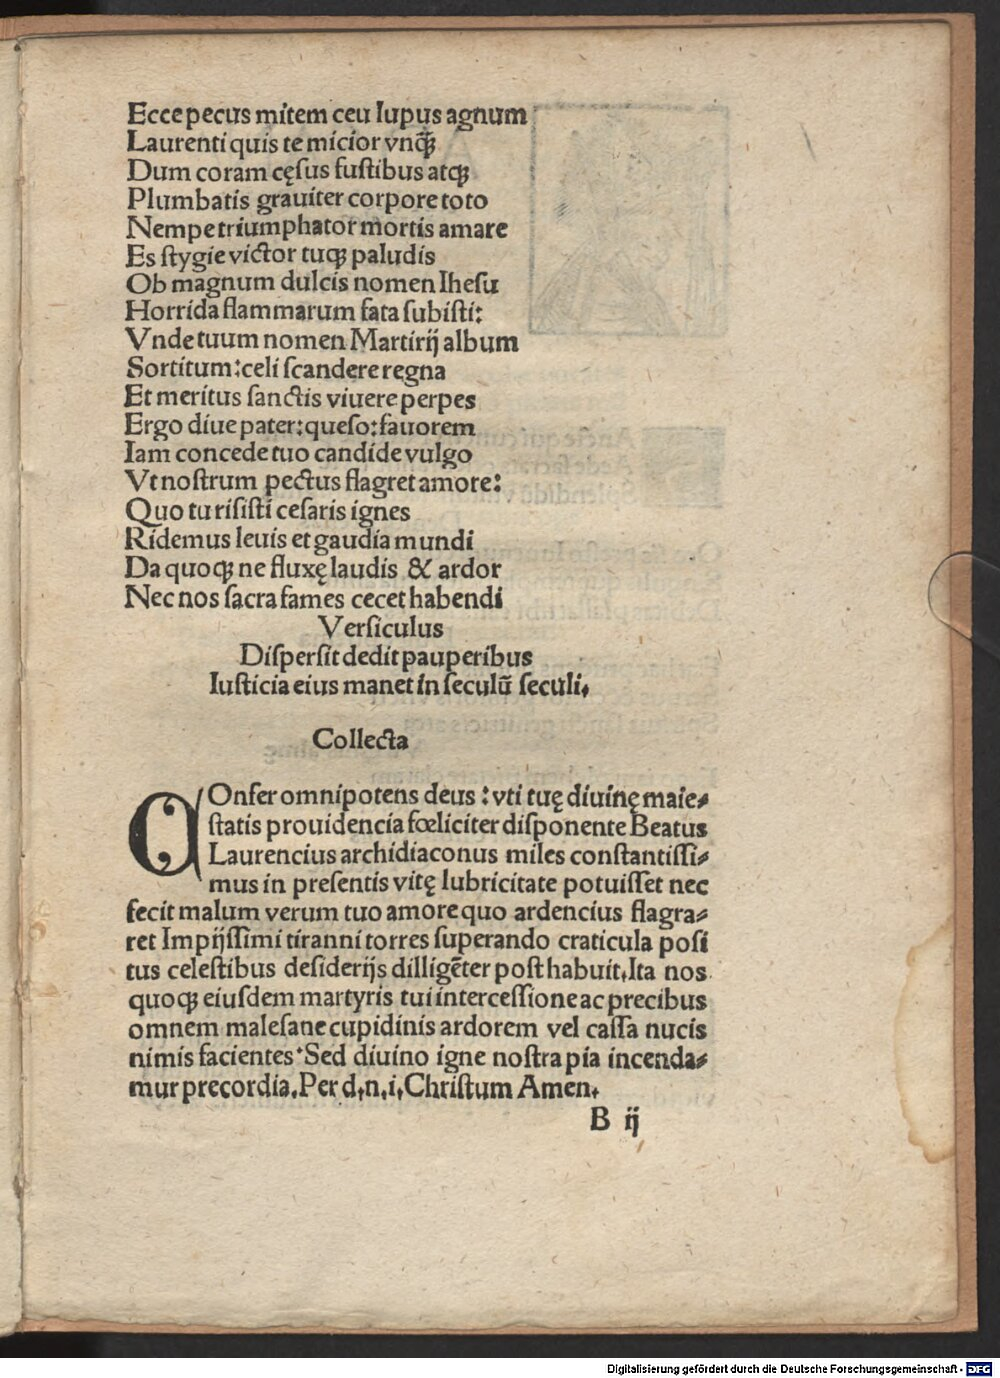 Ecce pecus mitem ceu lupus agnum
Laurenti quis te micior vnq̃ꝫ
Dum coram cęsus fustibus atqꝫ
Plumbatis grauiter corpore toto
Nempe triumphator mortis amare
Es stygie victor tuqꝫ paludis
Ob magnum dulcis nomen Ihesu
Horrida flammarum fata subisti:
Vnde tuum nomen Martirij album
Sortitum: celi scandere regna
Et meritus sanctis viuere perpes
Ergo diue pater: queso: fauorem
Iam concede tuo candide vulgo
Vt nostrum pectus flagret amore:
Quo tu risisti cesaris ignes
Ridemus leuis et gaudia mundi
Da quoqꝫ ne fluxę laudis & ardor
Nec nos sacra fames cecet habendi
Versiculus
Dispersit dedit pauperibus
Iusticia eius manet in seculũ seculi.
Collecta
COnfer omnipotens deus: vti tuę diuinę maie⸗
statis prouidencia fœliciter disponente Beatus
Laurencius archidiaconus miles constantissi⸗
mus in presentis vitę lubricitate potuisset nec
fecit malum verum tuo amore quo ardencius flagra⸗
ret Impijssimi tiranni torres superando craticula posi
tus celestibus desiderijs dilligẽter posthabuit. Ita nos
quoqꝫ eiusdem martyris tui intercessione ac precibus
omnem malesane cupidinis ardorem vel cassa nucis
nimis facientes. Sed diuino igne nostra pia incenda⸗
mur precordia. Per d. n. i. Christum Amen.
B ij
Digitalisierung gefördert durch die Deutsche Forschungsgemeinschaft - DFG